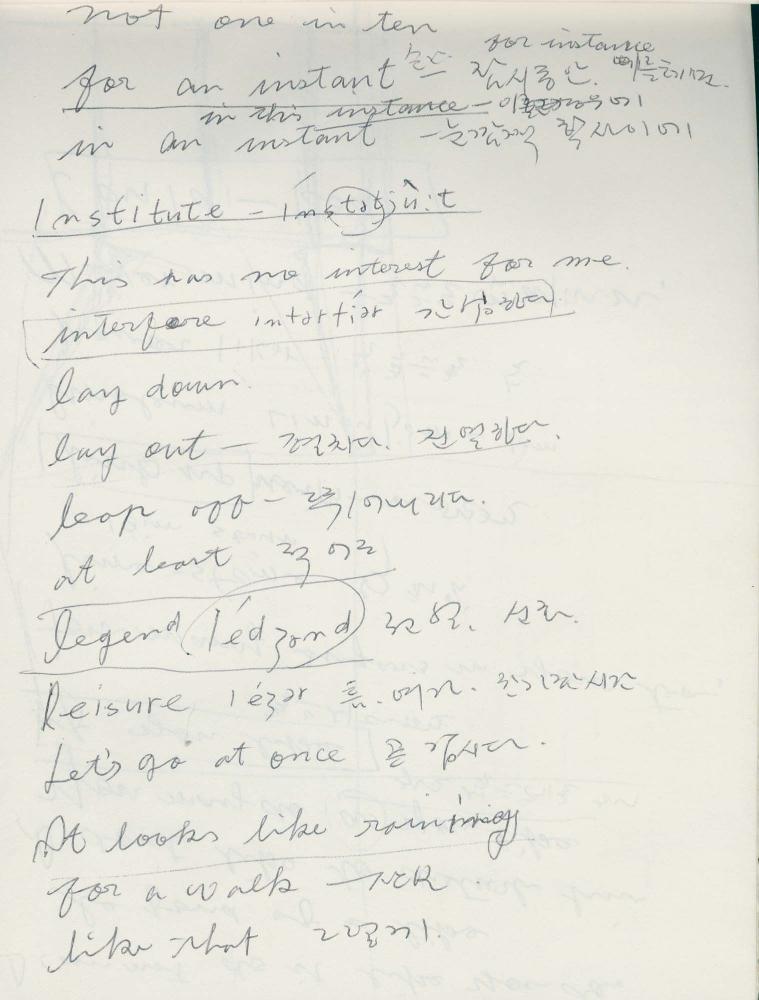 not one in ten
for instance
for an instant 잠시동안. 예를들면.
in this instance - 이 경우에
in an instant - 눈깜짝 할사이에
Institute - ínstətjù:t
This has no interest for me.
interfere intərfíər 간섭하다
lay down.
lay out - 펼치다. 진열하다.
leap off - 뛰어내리다.
at least 적어도
legend lédʒənd 전설. 신화.
Leisure léʒər 틈. 여가. 한가한시간
Let's go at once 곧 갑시다.
It looks like raining
for a walk - 산보
like that 그렇게.